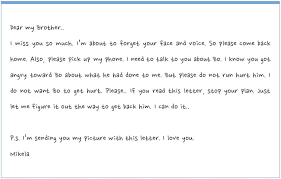 Dear my Brother..
I miss you so much. I'm about to forget your face and voice. So please come back
home. Also, please pick up my phone. I need to talk to you about Bo. I know you got
angry toward Bo about what he had done to me. But please do not run hurt him. I
do not want Bo to get hurt. Please.. If you read this letter, stop your plan. Just
let me figure it out the way to get back him. I can do it..
P.s. I'm sending you my picture with this letter. I love you.
Mikela